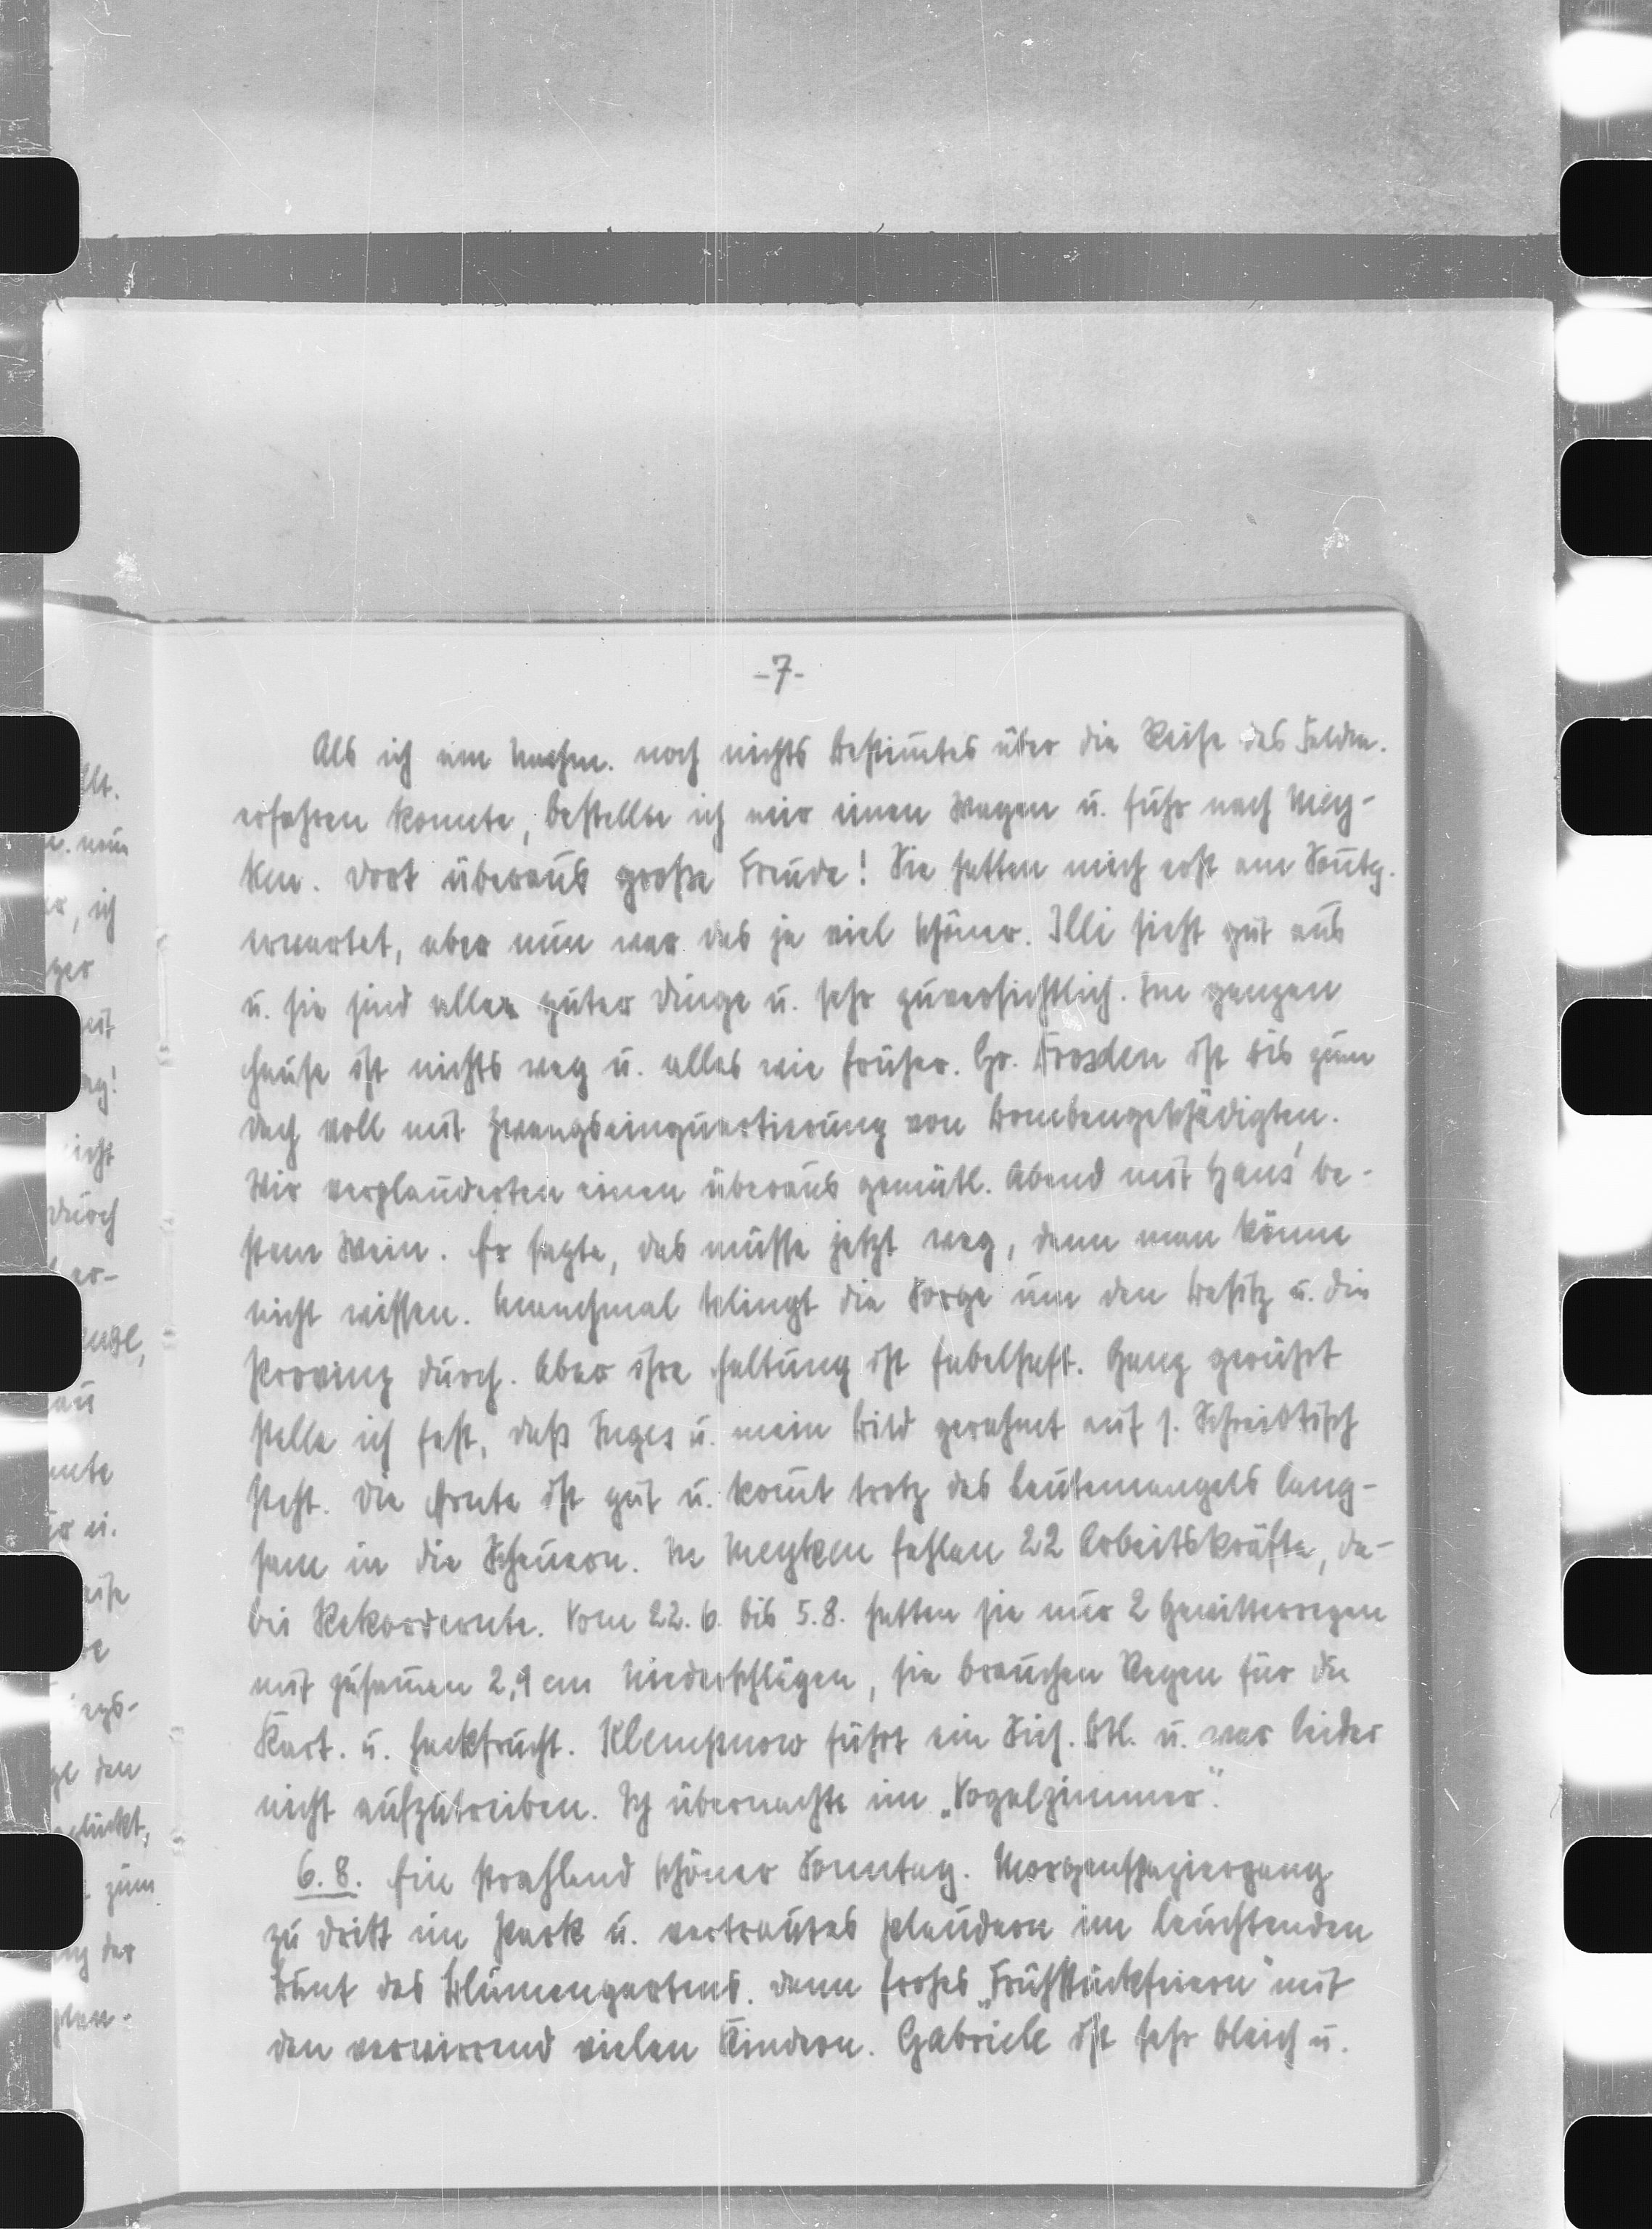 -7-
Als ich am Nachm. noch nichts bestimmtes über die Reise des Feldm.
erfahren konnte, bestellte ich mir einen Wagen u. fuhr nach Mey-
ken. Dort überaus große Freude! Sie hatten mich erst am Sontg.
erwartet, aber nun war das ja viel schöner. Illi sieht gut aus
u. sie sind aller guter Dinge u. sehr zuversichtlich. Im ganzen
Hause ist nichts weg u. alles wie früher. Gr. Droosden ist bis zum
Dach voll mit Zwangseinquartierung von Bombengeschädigten.
Wir verplauderten einen überaus gemütl. Abend mit Hans' be-
stem Wein. Er sagte, das müsse jetzt weg, denn man könne
nicht wissen. Manchmal klingt die Sorge um den Besitz u. die
Provinz durch. Aber ihre Haltung ist fabelhaft. Ganz gerührt
stelle ich fest, daß Inges u. mein Bild gerahmt auf s. Schreibtisch
steht. Die Ernte ist gut u. komt trotz des Leutemangels lang-
sam in die Scheuern. In Meyken fehlen 22 Arbeitskräfte, da-
bei Rekordernte. Vom 22.6. bis 5.8. hatten sie nur 2 Gewitterregen
mit zusamen 2,9 cm Niederschlägen, sie brauchen Regen für die
Kart. u. Hackfrucht. Klempnow führt ein Sich. Btl. u. war leider
nicht aufzutreiben. Ich übernachte im „Vogelzimmer".
6.8. Ein strahlend schöner Sonntag. Morgenspaziergang
zu dritt im Park u. vertrautes Plaudern im leuchtenden
Bunt des Blumengartens. Dann frohes „Frühstückfeiern" mit
den verwirrend vielen Kindern. Gabriele ist sehr bleich u.